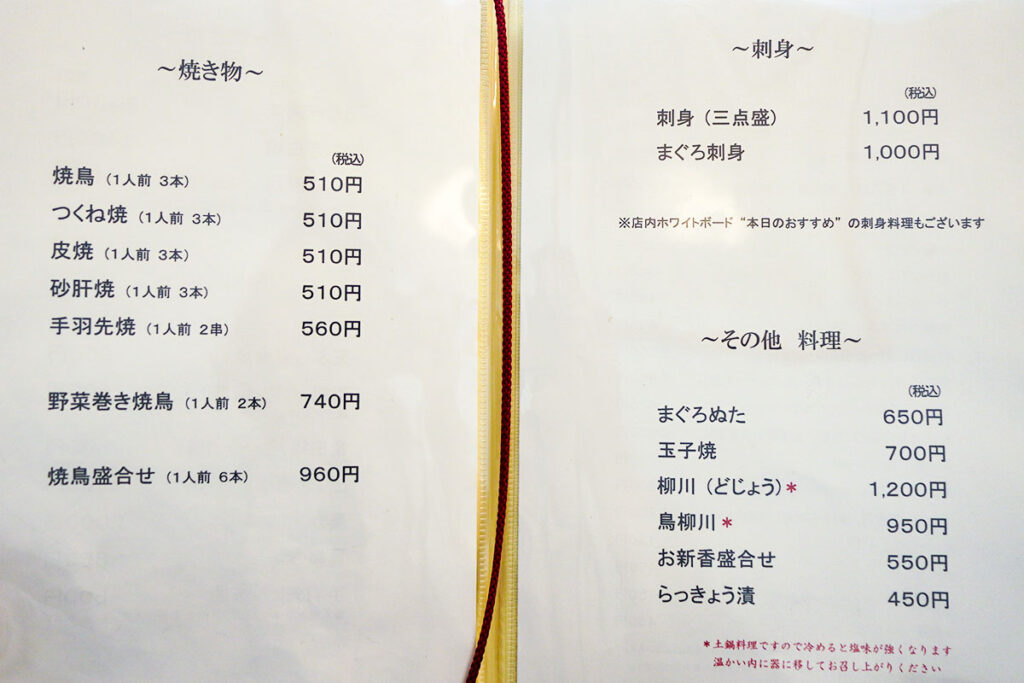 ～焼き物～
(税込)
焼鳥（1人前 3本） 510円
つくね焼（1人前 3本） 510円
皮焼（1人前 3本） 510円
砂肝焼（1人前 3本） 510円
手羽先焼（1人前 2串） 560円
野菜巻き焼鳥（1人前 2本） 740円
焼鳥盛合せ（1人前 6本） 960円
～刺身～
(税込)
刺身（三点盛） 1,100円
まぐろ刺身 1,000円
※店内ホワイトボード “本日のおすすめ” の刺身料理もございます
～その他 料理～
(税込)
まぐろぬた 650円
玉子焼 700円
柳川（どじょう）＊ 1,200円
鳥柳川＊ 950円
お新香盛合せ 550円
らっきょう漬 450円
＊土鍋料理ですので冷めると塩味が強くなります
温かい内に器に移してお召し上がりください